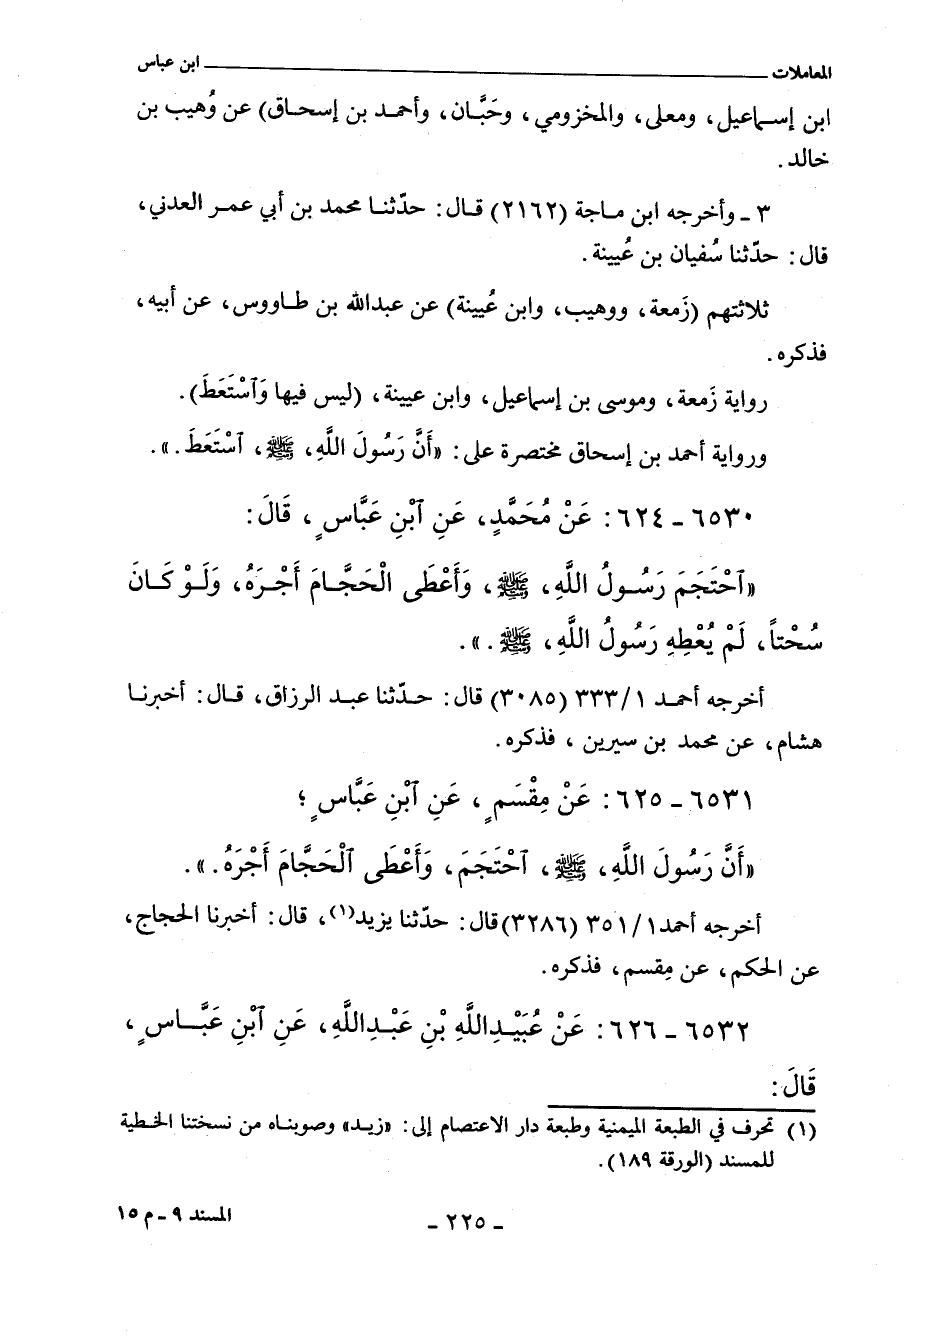 المعاملات ــــــــــــــــــــــــــــــــــــــــ ابن عباس
ابن إسـماعيل، ومعلى، والمخزومي، وحَبَّان، وأحمد بن إسحاق) عن وُهيب بن
خالد .
٣ ـ وأخرجه ابن ماجة (٢١٦٢) قال: حدّثنا محمد بن أبي عمر العدني،
قال: حدّثنا سُفيان بن عُيينة .
ثلاثتهم (زَمعة، ووهيب، وابن عُيينة) عن عبدالله بن طاووس، عن أبيه،
فذكره .
رواية زَمعة، وموسى بن إسماعيل، وابن عيينة، (ليس فيها وَآسْتَعَطَ).
ورواية أحمد بن إسحاق مختصرة على: «أَنَّ رَسُولَ اللَّهِ، ﷺ، آسْتَعَطَ . ».
٦٥٣٠ ـ ٦٢٤: عَنْ مُحَمَّدٍ، عَنِ آبْنِ عَبَّاسٍ ، قَالَ:
«آحْتَجَمَ رَسُولُ اللَّهِ، ﷺ، وَأَعْطَى الْحَجَّامَ أَجْرَهُ، وَلَوْ كَانَ
سُحْتاً، لَمْ يُعْطِهِ رَسُولُ اللَّهِ، ﷺ . ».
أخرجه أحمد ١/ ٣٣٣ (٣٠٨٥) قال: حدّثنا عبد الرزاق، قال: أخبرنا
هشام، عن محمد بن سيرين ، فذكره .
٦٥٣١ ـ ٦٢٥: عَنْ مِقْسَمٍ ، عَنِ آبْنِ عَبَّاسٍ ؛
«أَنَّ رَسُولَ اللَّهِ، ﷺ، آحْتَجَمَ، وَأَعْطَى آلْحَجَّامَ أَجْرَهُ . ».
أخرجه أحمد ١/ ٣٥١ (٣٢٨٦) قال: حدّثنا يزيد(١)، قال: أخبرنا الحجاج،
عن الحكم، عن مِقسم، فذكره .
٦٥٣٢ ـ ٦٢٦: عَنْ عُبَيْدِاللَّهِ بْنِ عَبْدِاللَّهِ، عَنِ آبْنِ عَبَّاسٍ ،
قَالَ:
(١) تحرف في الطبعة الميمنية وطبعة دار الاعتصام إلى: «زيد» وصوبناه من نسختنا الخطية
للمسند (الورقة ١٨٩).
ـ ٢٢٥ ـ
المسند ٩ ـ م ١٥